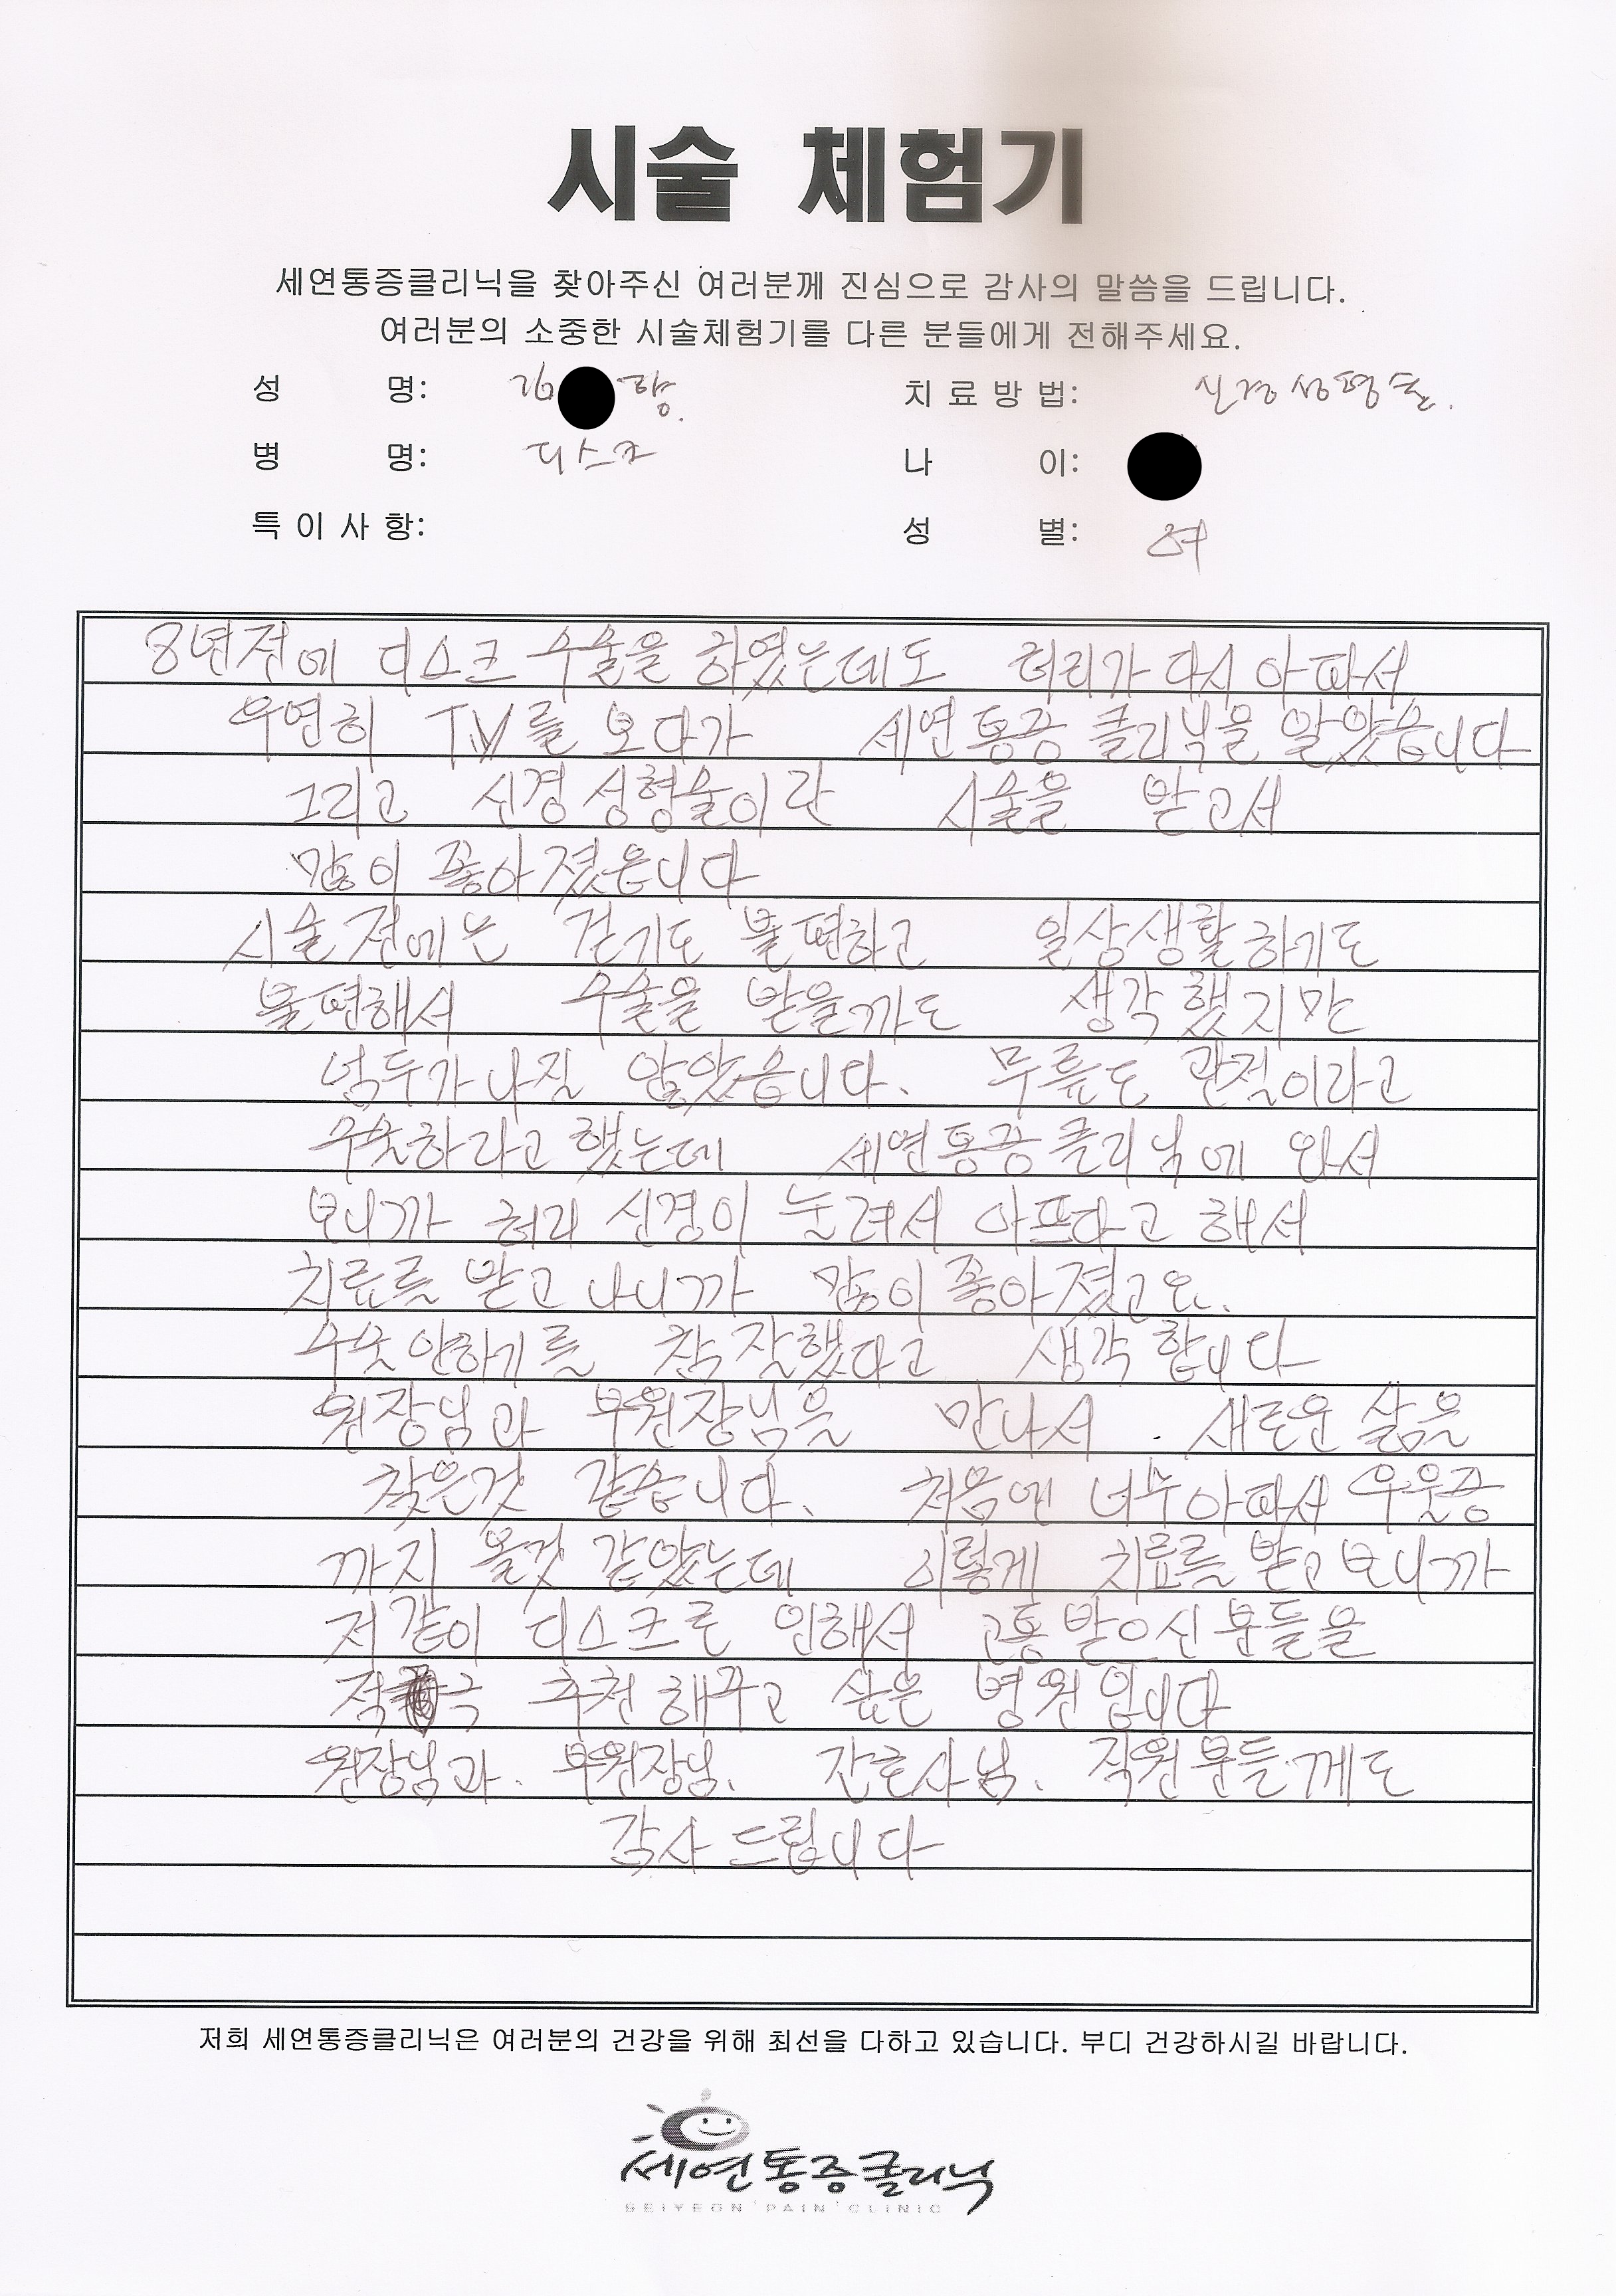 시술 체험기
세연통증클리닉을 찾아주신 여러분께 진심으로 감사의 말씀을 드립니다.
여러분의 소중한 시술체험기를 다른 분들에게 전해주세요.
성 명: 김 향. 치료방법: 신경성형술.
병 명: 디스크 나 이:
특이사항: 성 별: 여
8년전에 디스크 수술을 하였는데도 허리가 다시 아파서
우연히 TV를 보다가 세연통증 클리닉을 알았습니다
그리고 신경성형술이란 시술을 받고서
많이 좋아졌습니다
시술전에는 걷기도 불편하고 일상생활하기도
불편해서 수술을 받을까도 생각했지만
엄두가 나질 않았습니다. 무릎도 관절이라고
수술하라고 했는데 세연통증클리닉에 와서
보니까 허리 신경이 눌려서 아프다고 해서
치료를 받고 나니까 많이 좋아졌고요.
수술 안하기를 참 잘했다고 생각 합니다
원장님과 부원장님을 만나서 . 새로운 삶을
찾은것 같습니다. 처음엔 너무 아파서 우울증
까지 올것 같았는데 이렇게 치료를 받고 보니까
저 같이 디스크로 인해서 고통 받으신 분들을
적극 추천 해주고 싶은 병원 입니다
원장님과. 부원장님. 간호사님. 직원분들께도
감사 드립니다
저희 세연통증클리닉은 여러분의 건강을 위해 최선을 다하고 있습니다. 부디 건강하시길 바랍니다.
세연통증클리닉
SEIYEON PAIN CLINIC